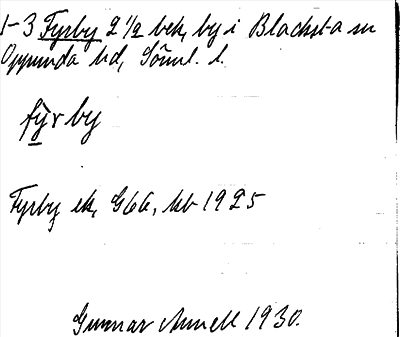 1-3 Fyrby 2 1/2 bek, by i Blacksta sn
Oppunda hd, Söml. l.
fy̠̆r by
Fyrby ek, G6a, kb 1925
Gunnar Annell 1930.